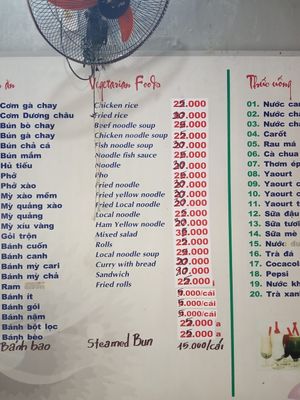 ăn Vegetarian Foods Thức uống
Cơm gà chay Chicken rice 25.000
Cơm Dương châu Fried rice 20.000
Bún bò chay Beef noodle soup 25.000
Bún gà chay Chicken noodle soup 25.000
Bún chả cá Fish noodle soup 20.000
Bún mắm Noodle fish sauce 25.000
Hủ tiếu Noodle 20.000
Phở Pho 25.000
Phở xào Fried noodle 20.000
Mỳ xào mềm Fried yellow noodle 20.000
Mỳ quảng xào Fried Local noodle 20.000
Mỳ quảng Local noodle 25.000
Mỳ xíu vàng Ham Yellow noodle 20.000
Gỏi trộn Mixed salad 35.000
Bánh cuốn Rolls 25.000
Bánh canh Local noodle soup 25.000
Bánh mỳ cari Curry with bread 20.000
Bánh mỳ chả Sandwich 10.000
Ram Fried rolls 25.000
Bánh ít 5.000/cái
Bánh gói 5.000/cái
Bánh nậm 5.000/cái
Bánh bột lọc 25.000
Bánh bèo 25.000
Bánh bao Steamed Bun 15.000/cái
01. Nước cam
02. Nước
03. Nước
04. Carốt
05. Rau má
06. Cà chua
07. Thơm ép
08. Yaourt
09. Yaourt
10. Yaourt
11. Yaourt
12. Sữa đậu
13. Sữa tươi
14. Sữa mè
15. Nước
16. Trà đá
17. Cocacola
18. Pepsi
19. Nước
20. Trà xanh